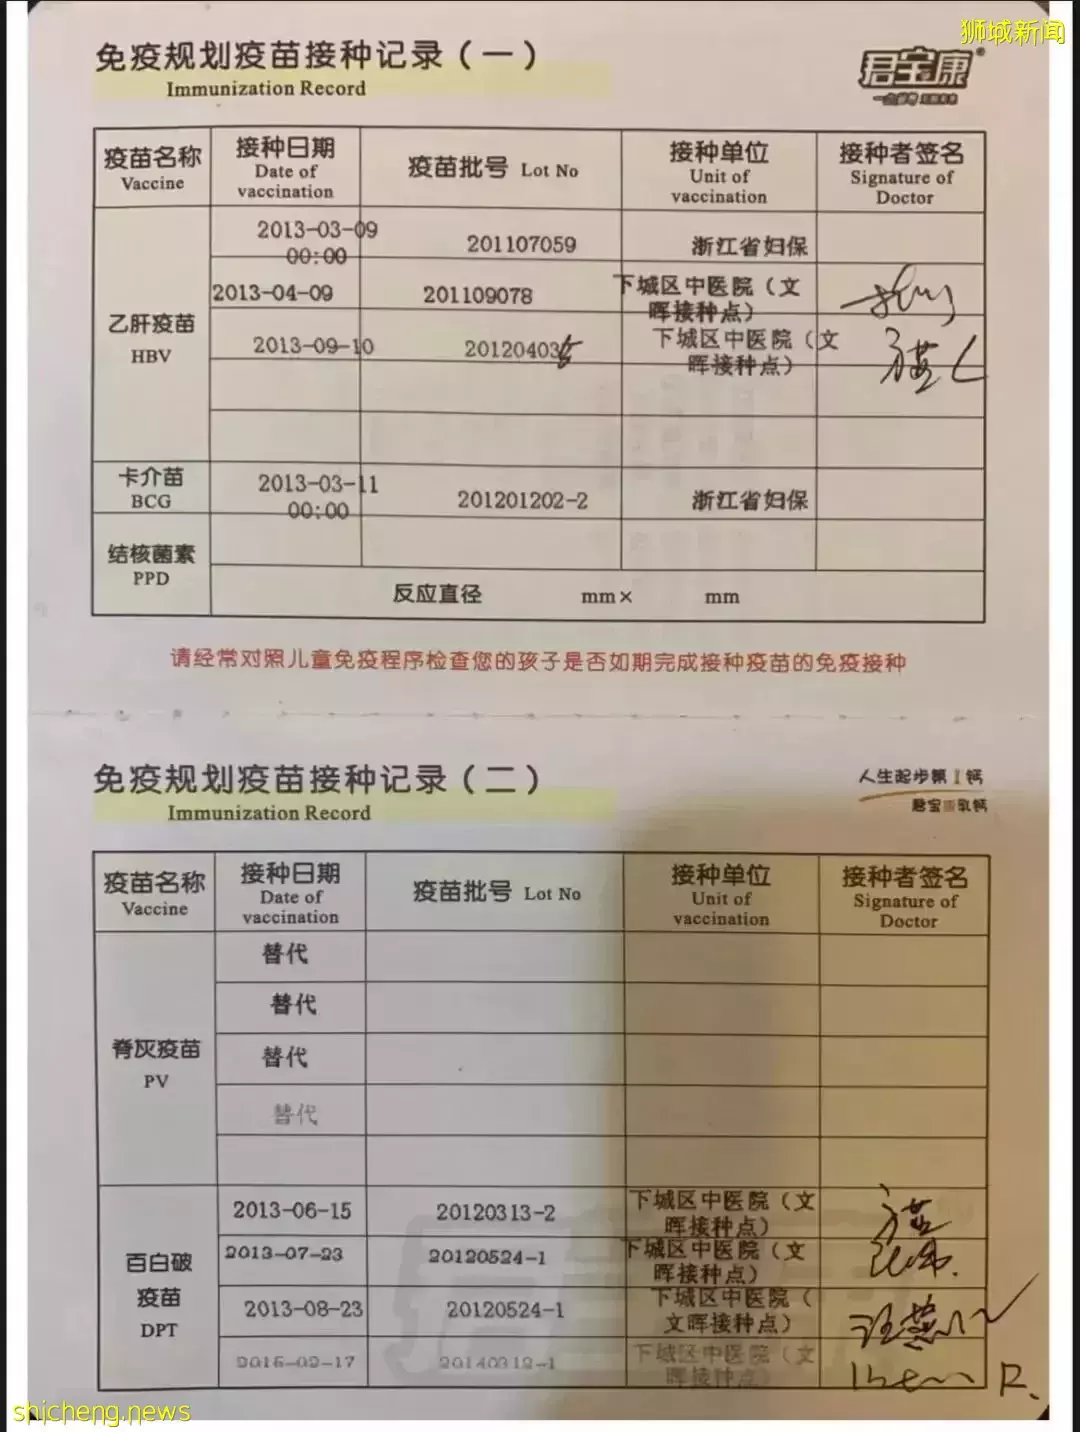 狮城新闻
免疫规划疫苗接种记录（一）
Immunization Record
君宝康
疫苗名称
Vaccine
接种日期
Date of
vaccination
疫苗批号 Lot No
接种单位
Unit of
vaccination
接种者签名
Signature of
Doctor
乙肝疫苗
HBV
2013-03-09
00:00
201107059
浙江省妇保
2013-04-09
201109078
下城区中医院（文
晖接种点）
2013-09-10
20120403
下城区中医院（文
晖接种点）
卡介苗
BCG
2013-03-11
00:00
201201202-2
浙江省妇保
结核菌素
PPD
反应直径 mm× mm
请经常对照儿童免疫程序检查您的孩子是否如期完成接种疫苗的免疫接种
免疫规划疫苗接种记录（二）
Immunization Record
人生起步第1钙
君宝康乳钙
疫苗名称
Vaccine
接种日期
Date of
vaccination
疫苗批号 Lot No
接种单位
Unit of
vaccination
接种者签名
Signature of
Doctor
脊灰疫苗
PV
替代
替代
替代
替代
百白破
疫苗
DPT
2013-06-15
20120313-2
下城区中医院（文
晖接种点）
2013-07-23
20120524-1
下城区中医院（文
晖接种点）
2013-08-23
20120524-1
下城区中医院（
文晖接种点）
2015-02-17
20140312-1
下城区中医院（文
晖接种点）
shicheng.news